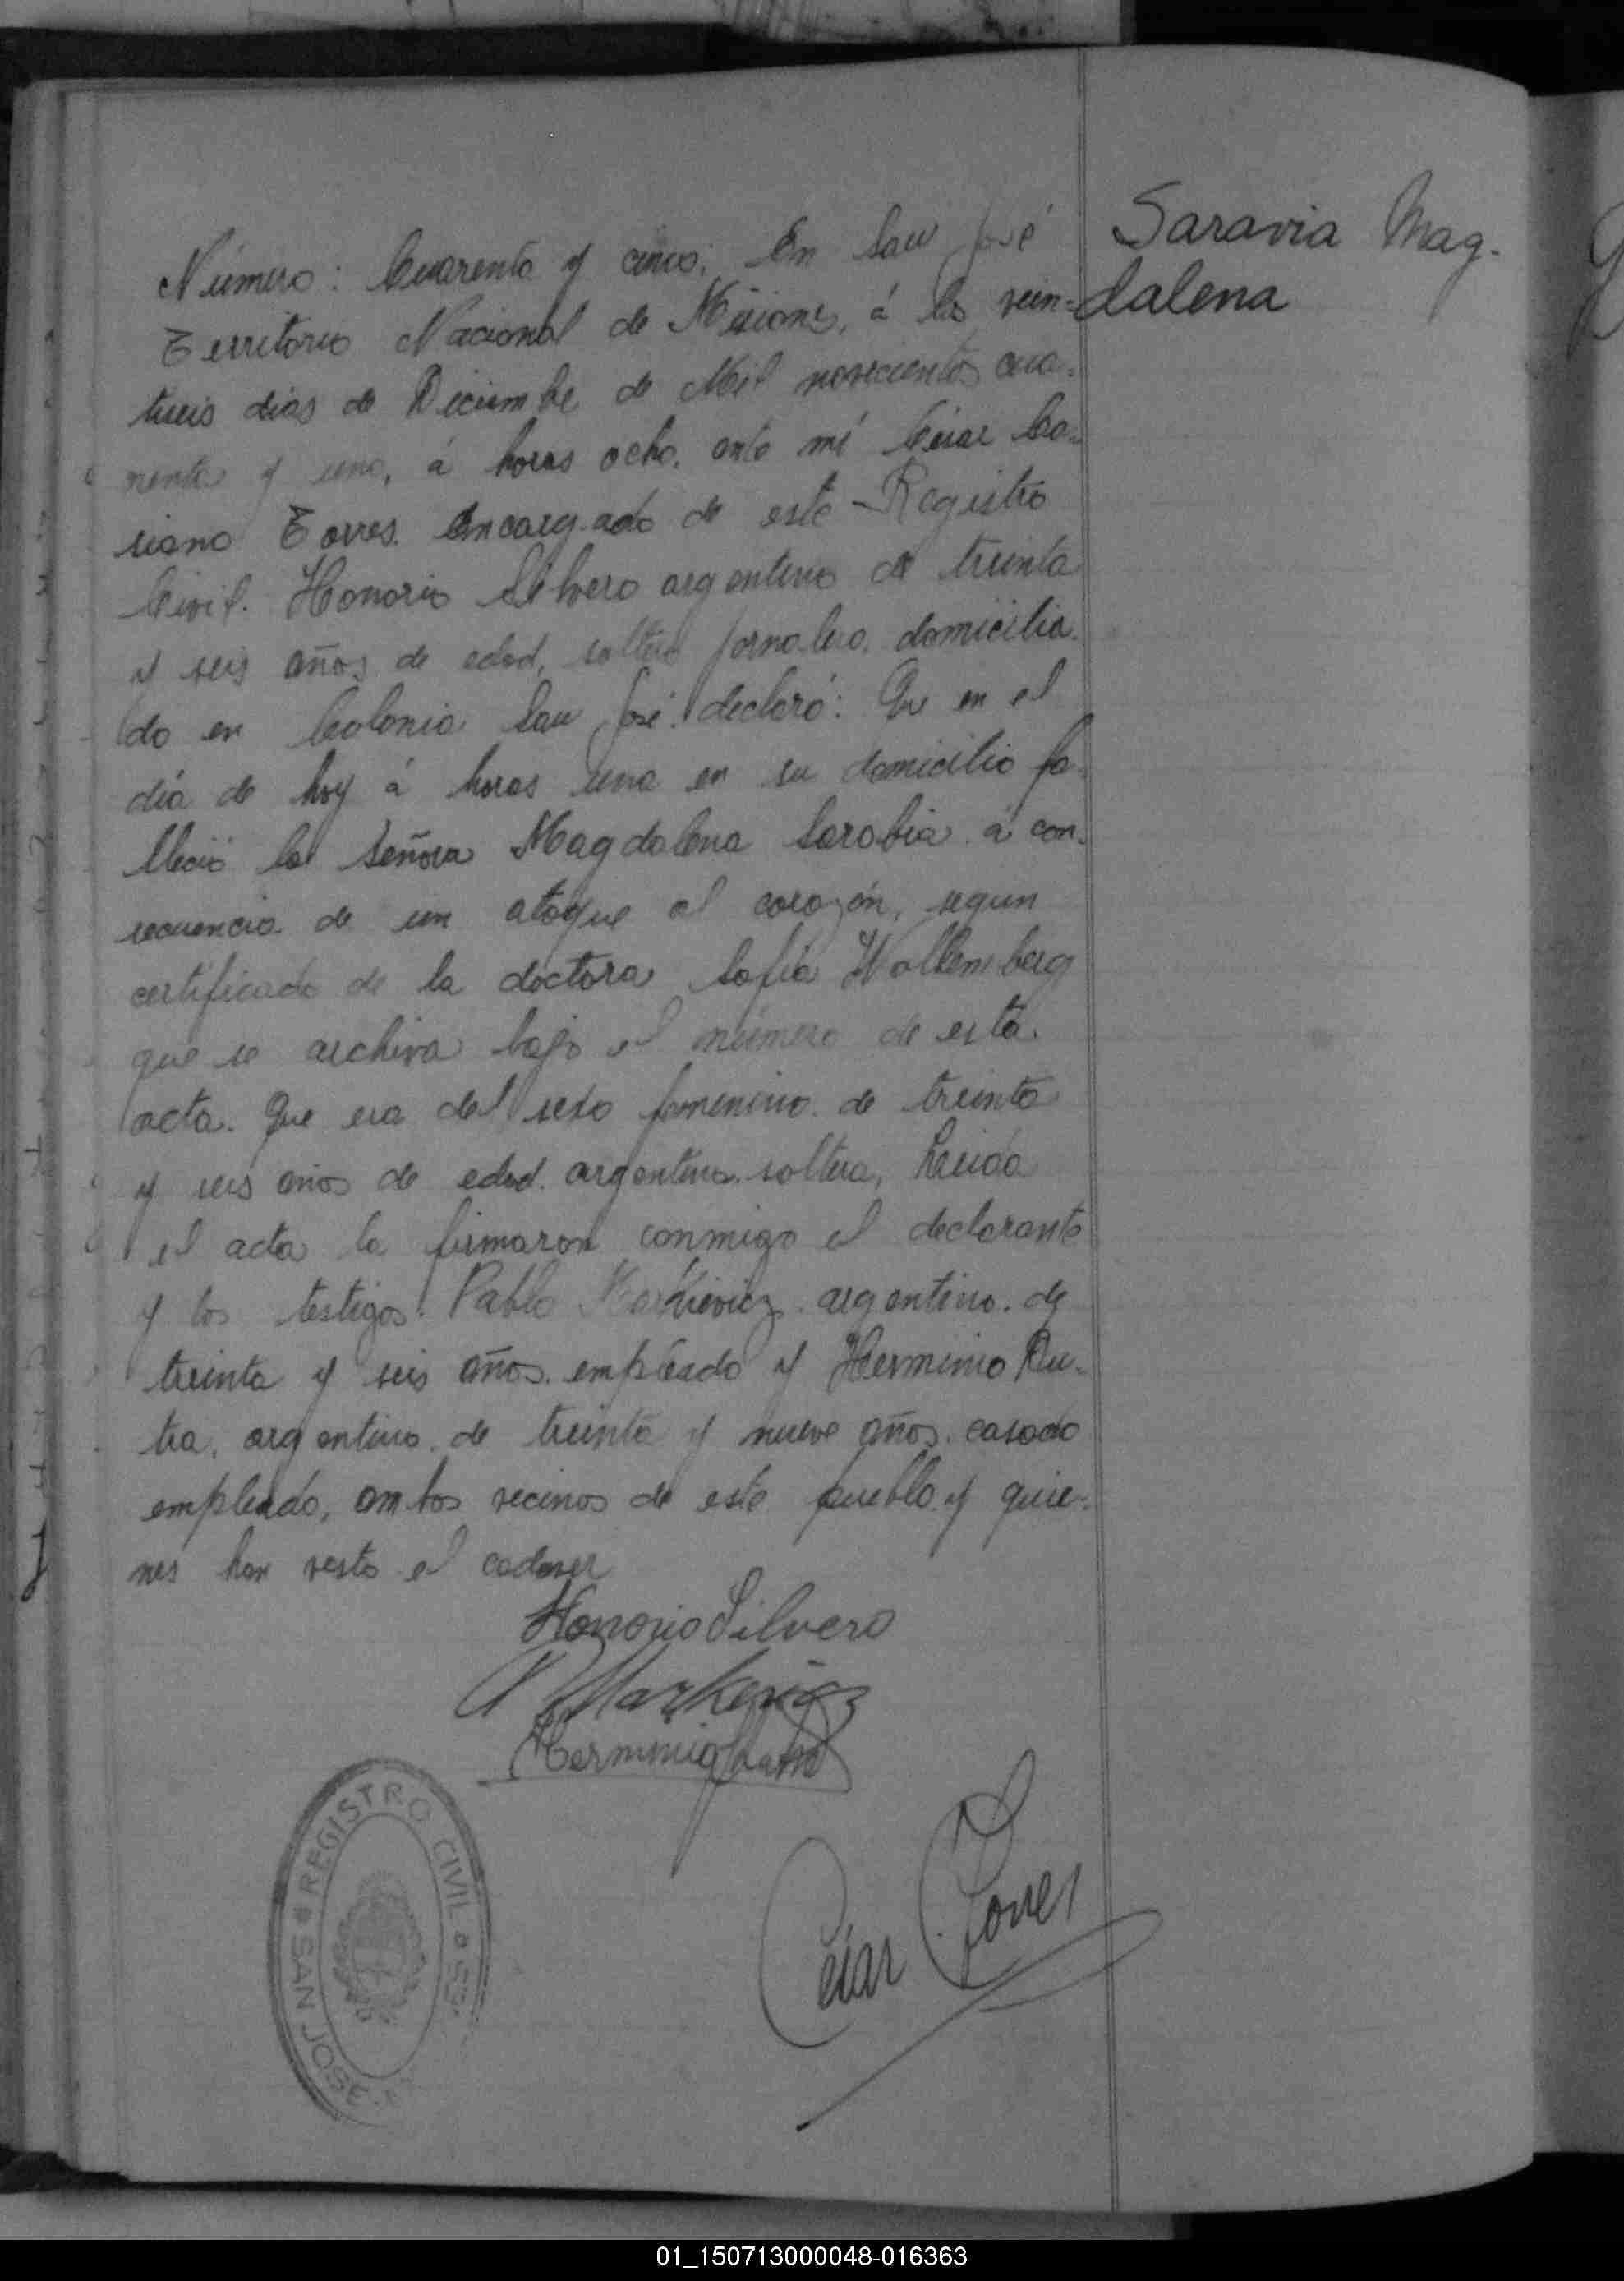 Saravia Mag-
dalena
Número: Cuarenta y cinco. En San José
Territorio Nacional de Misiones, á los vein-
tiseis dias de Diciembre de Mil novecientos cua-
renta y uno, á horas ocho, ante mí César
Torres. Encargado de este Registro
Civil. Honorio Silvero argentino de treinta
y seis años de edad, soltero jornalero, domicilia-
do en Colonia San José. declaró: Que en el
día de hoy á horas una en su domicilio fa-
lleció la Señora Magdalena Sarabia á con-
secuencia de un ataque al corazón, segun
certificado de la doctora Sofía Wallemberg
que se archiva bajo el número de esta
acta. Que era del sexo femenino de treinta
y seis años de edad. argentina. soltera, Leida
el acta la firmaron conmigo el declarante
y los testigos: Pablo Markievicz argentino. de
treinta y seis años. empleado y Herminio Du-
tra, argentino de treinta y nueve años. casado
empleado, ambos vecinos de este pueblo y quie-
nes han visto el cadaver
Honorio Silvero
P Markievicz
Herminio Dutra
César Torres
REGISTRO CIVIL
SAN JOSE
01_150713000048-016363